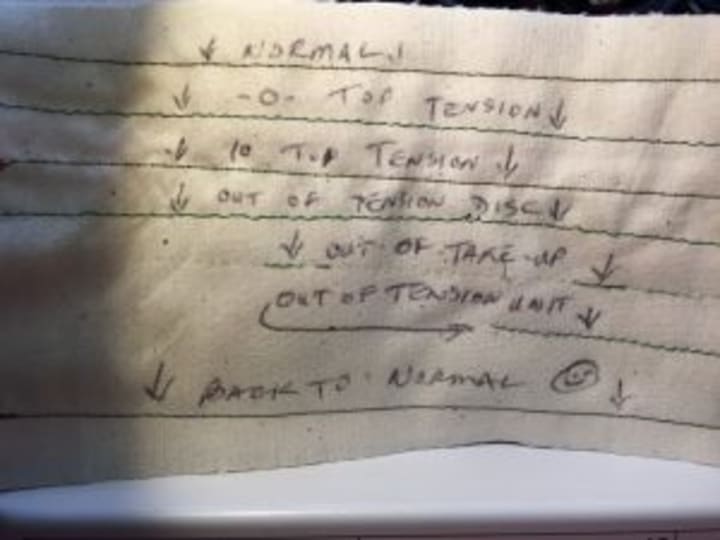 NORMAL
-0- TOP TENSION
10 TOP TENSION
OUT OF TENSION DISC
OUT OF TAKE-UP
OUT OF TENSION UNIT
BACK TO NORMAL